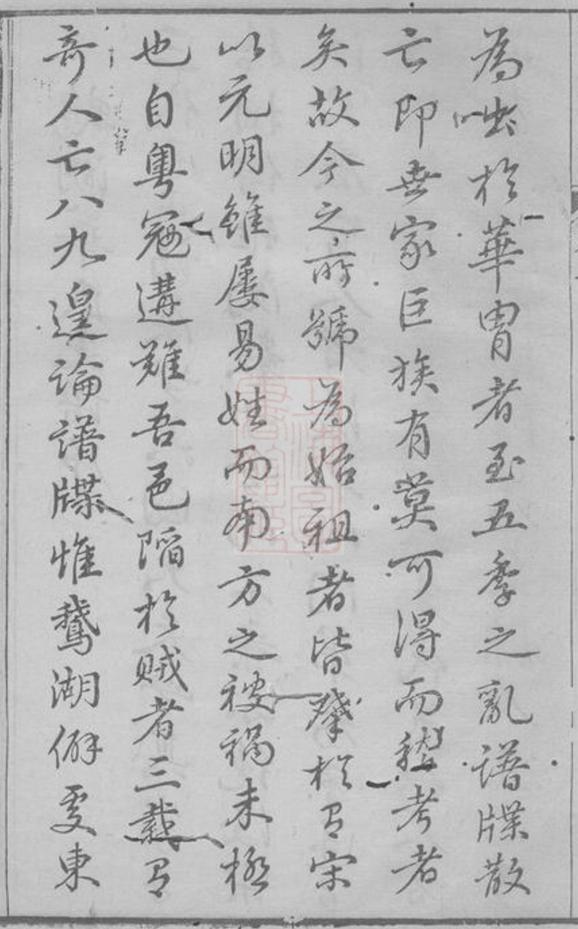 為咄於華胄者至五季之亂譜牒散
亡即世家巨族有莫可得而稽考者
矣故今之所號為始祖者皆肇於有宋
以元明雖屢易姓而南方之被禍未極
也自粵寇遘難吾邑陷於賊者三載有
奇人亡八九遑論譜牒惟鵞湖僻處東